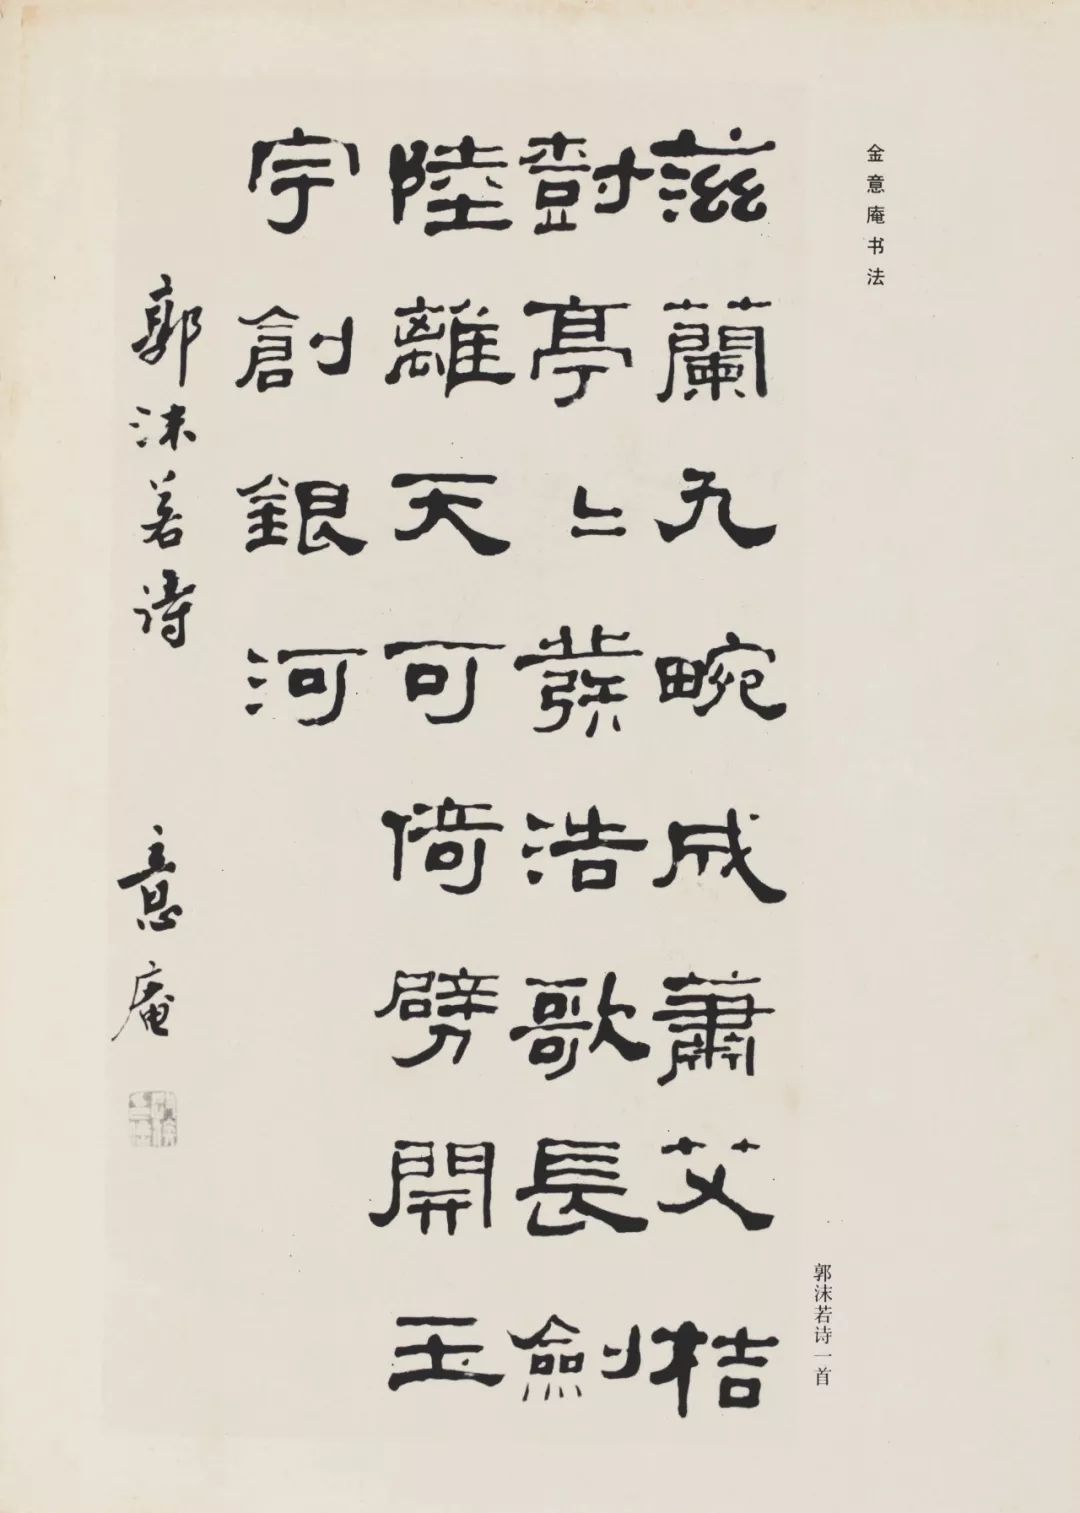 金意庵书法
滋蘭九畹成蕭艾桔
樹亭〻發浩歌長劍
陸離天可倚劈開玉
宇創銀河
郭沫若诗 意庵
郭沫若诗一首